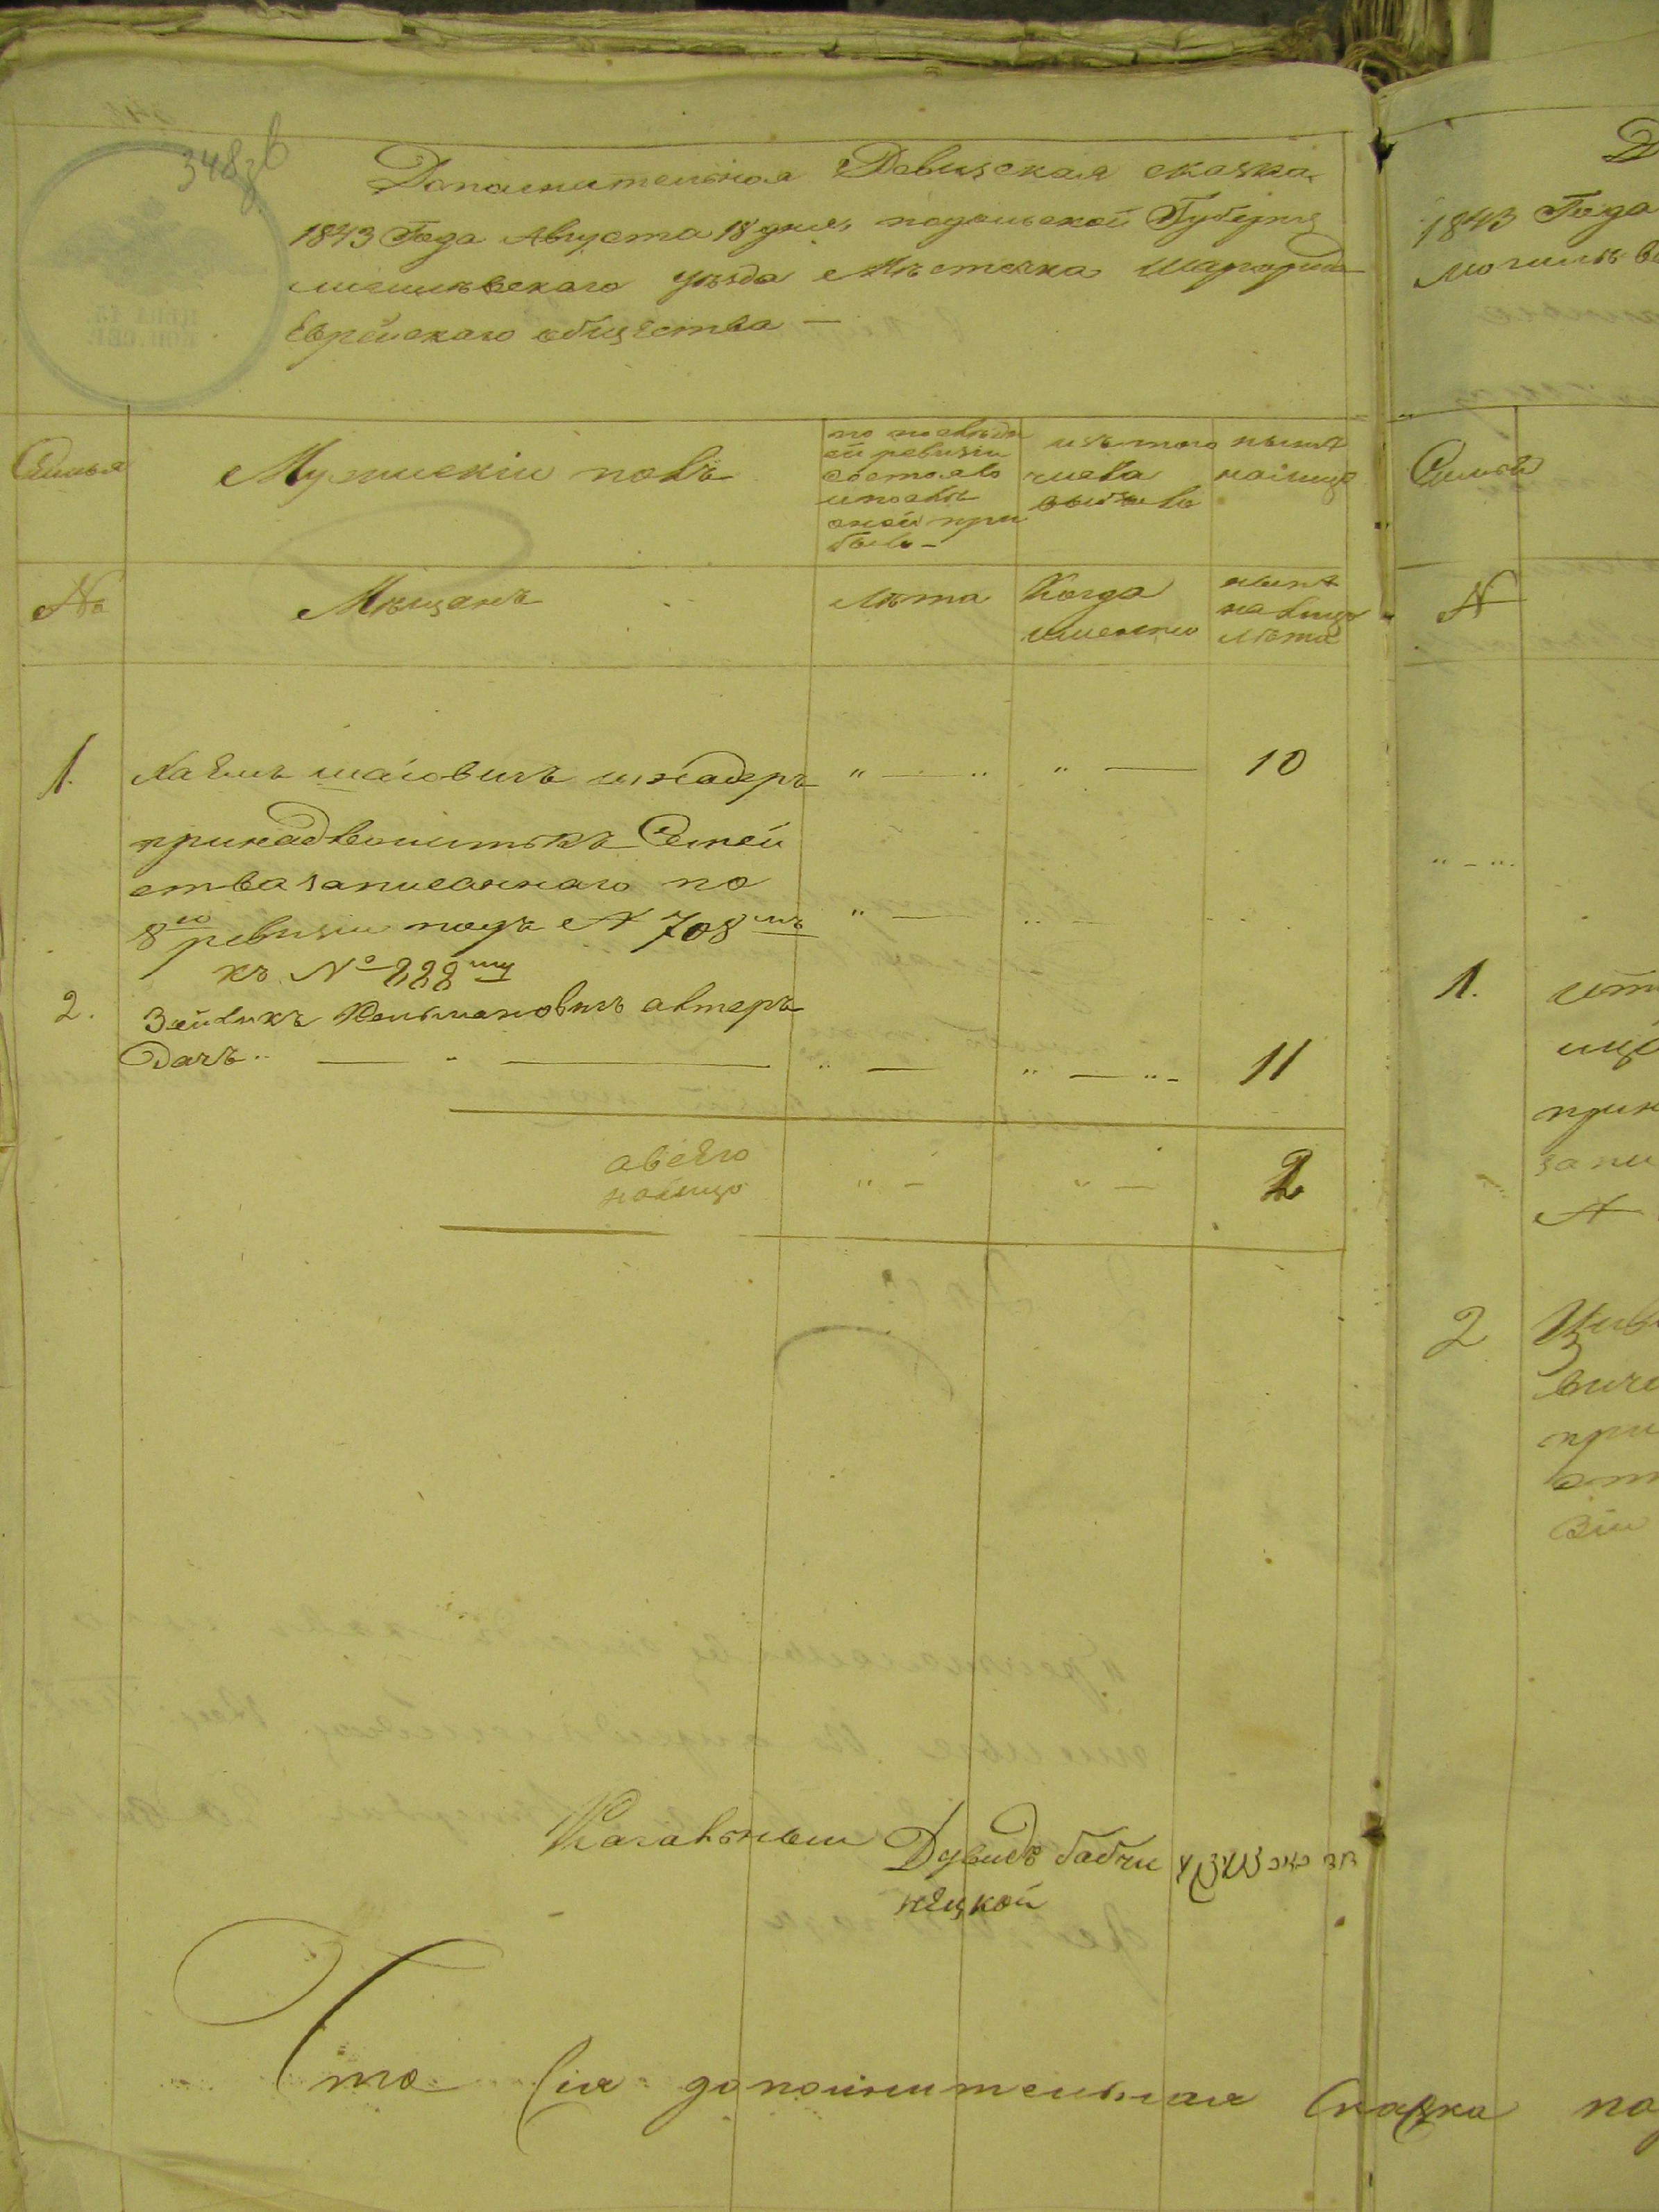 348 зв
Дополнительная Ревизская сказка
1843 Года Августа 18 дня, подольской Губерніи
могилевскаго уѣзда Мѣстечка Шаргорода
Еврейскаго общества —
Семья
Мужескій полъ
по послѣдн
ей ревизіи
состояло
и послѣ
оной при
было –
изъ того
числа
выбыло
нынѣ
налицо
№
Мѣщанъ
Лѣта
Когда
именно
нынѣ
на лицо
лѣта
1. Хаимъ шаіовичъ шнадеръ 10
принадлежитъ къ Семей
ства записаннаго по
8ой ревизіи подъ № 708мъ
къ № 888му
2. Зейликъ Кельмановичъ
11
а всего
налицо
2
Кагальный Дувидъ бабчи
нецкой
Что Сія дополнительная Сказка по
1843 Года
могилев
Семья
№
1.
прин
запи
№
2
вичи
при
зіи